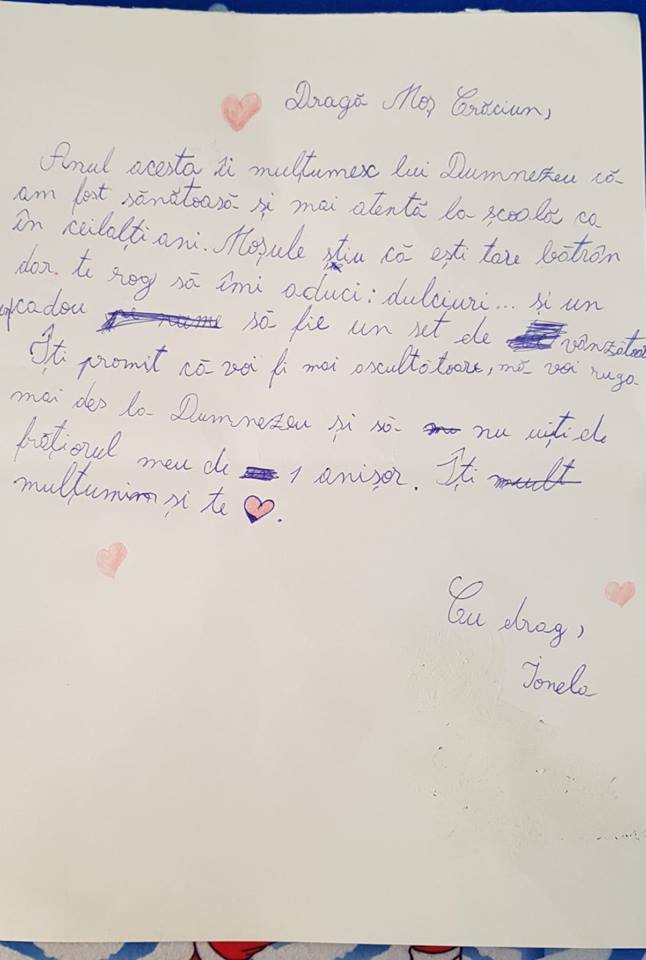 Dragă Moș Crăciun,
Anul acesta îi mulțumesc lui Dumnezeu că
am fost sănătoasă și mai atentă la școală ca
în ceilalți ani. Moșule știu că ești tare bătrân
dar te rog să îmi aduci: dulciuri... și un
cadou să fie un set de vânzătoar
Îți promit că voi fi mai ascultătoare, mă voi ruga
mai des la Dumnezeu și să nu uiți de
frățiorul meu de 1 anișor. Îți
mulțumim și te ♥.
Cu drag,
Ionela